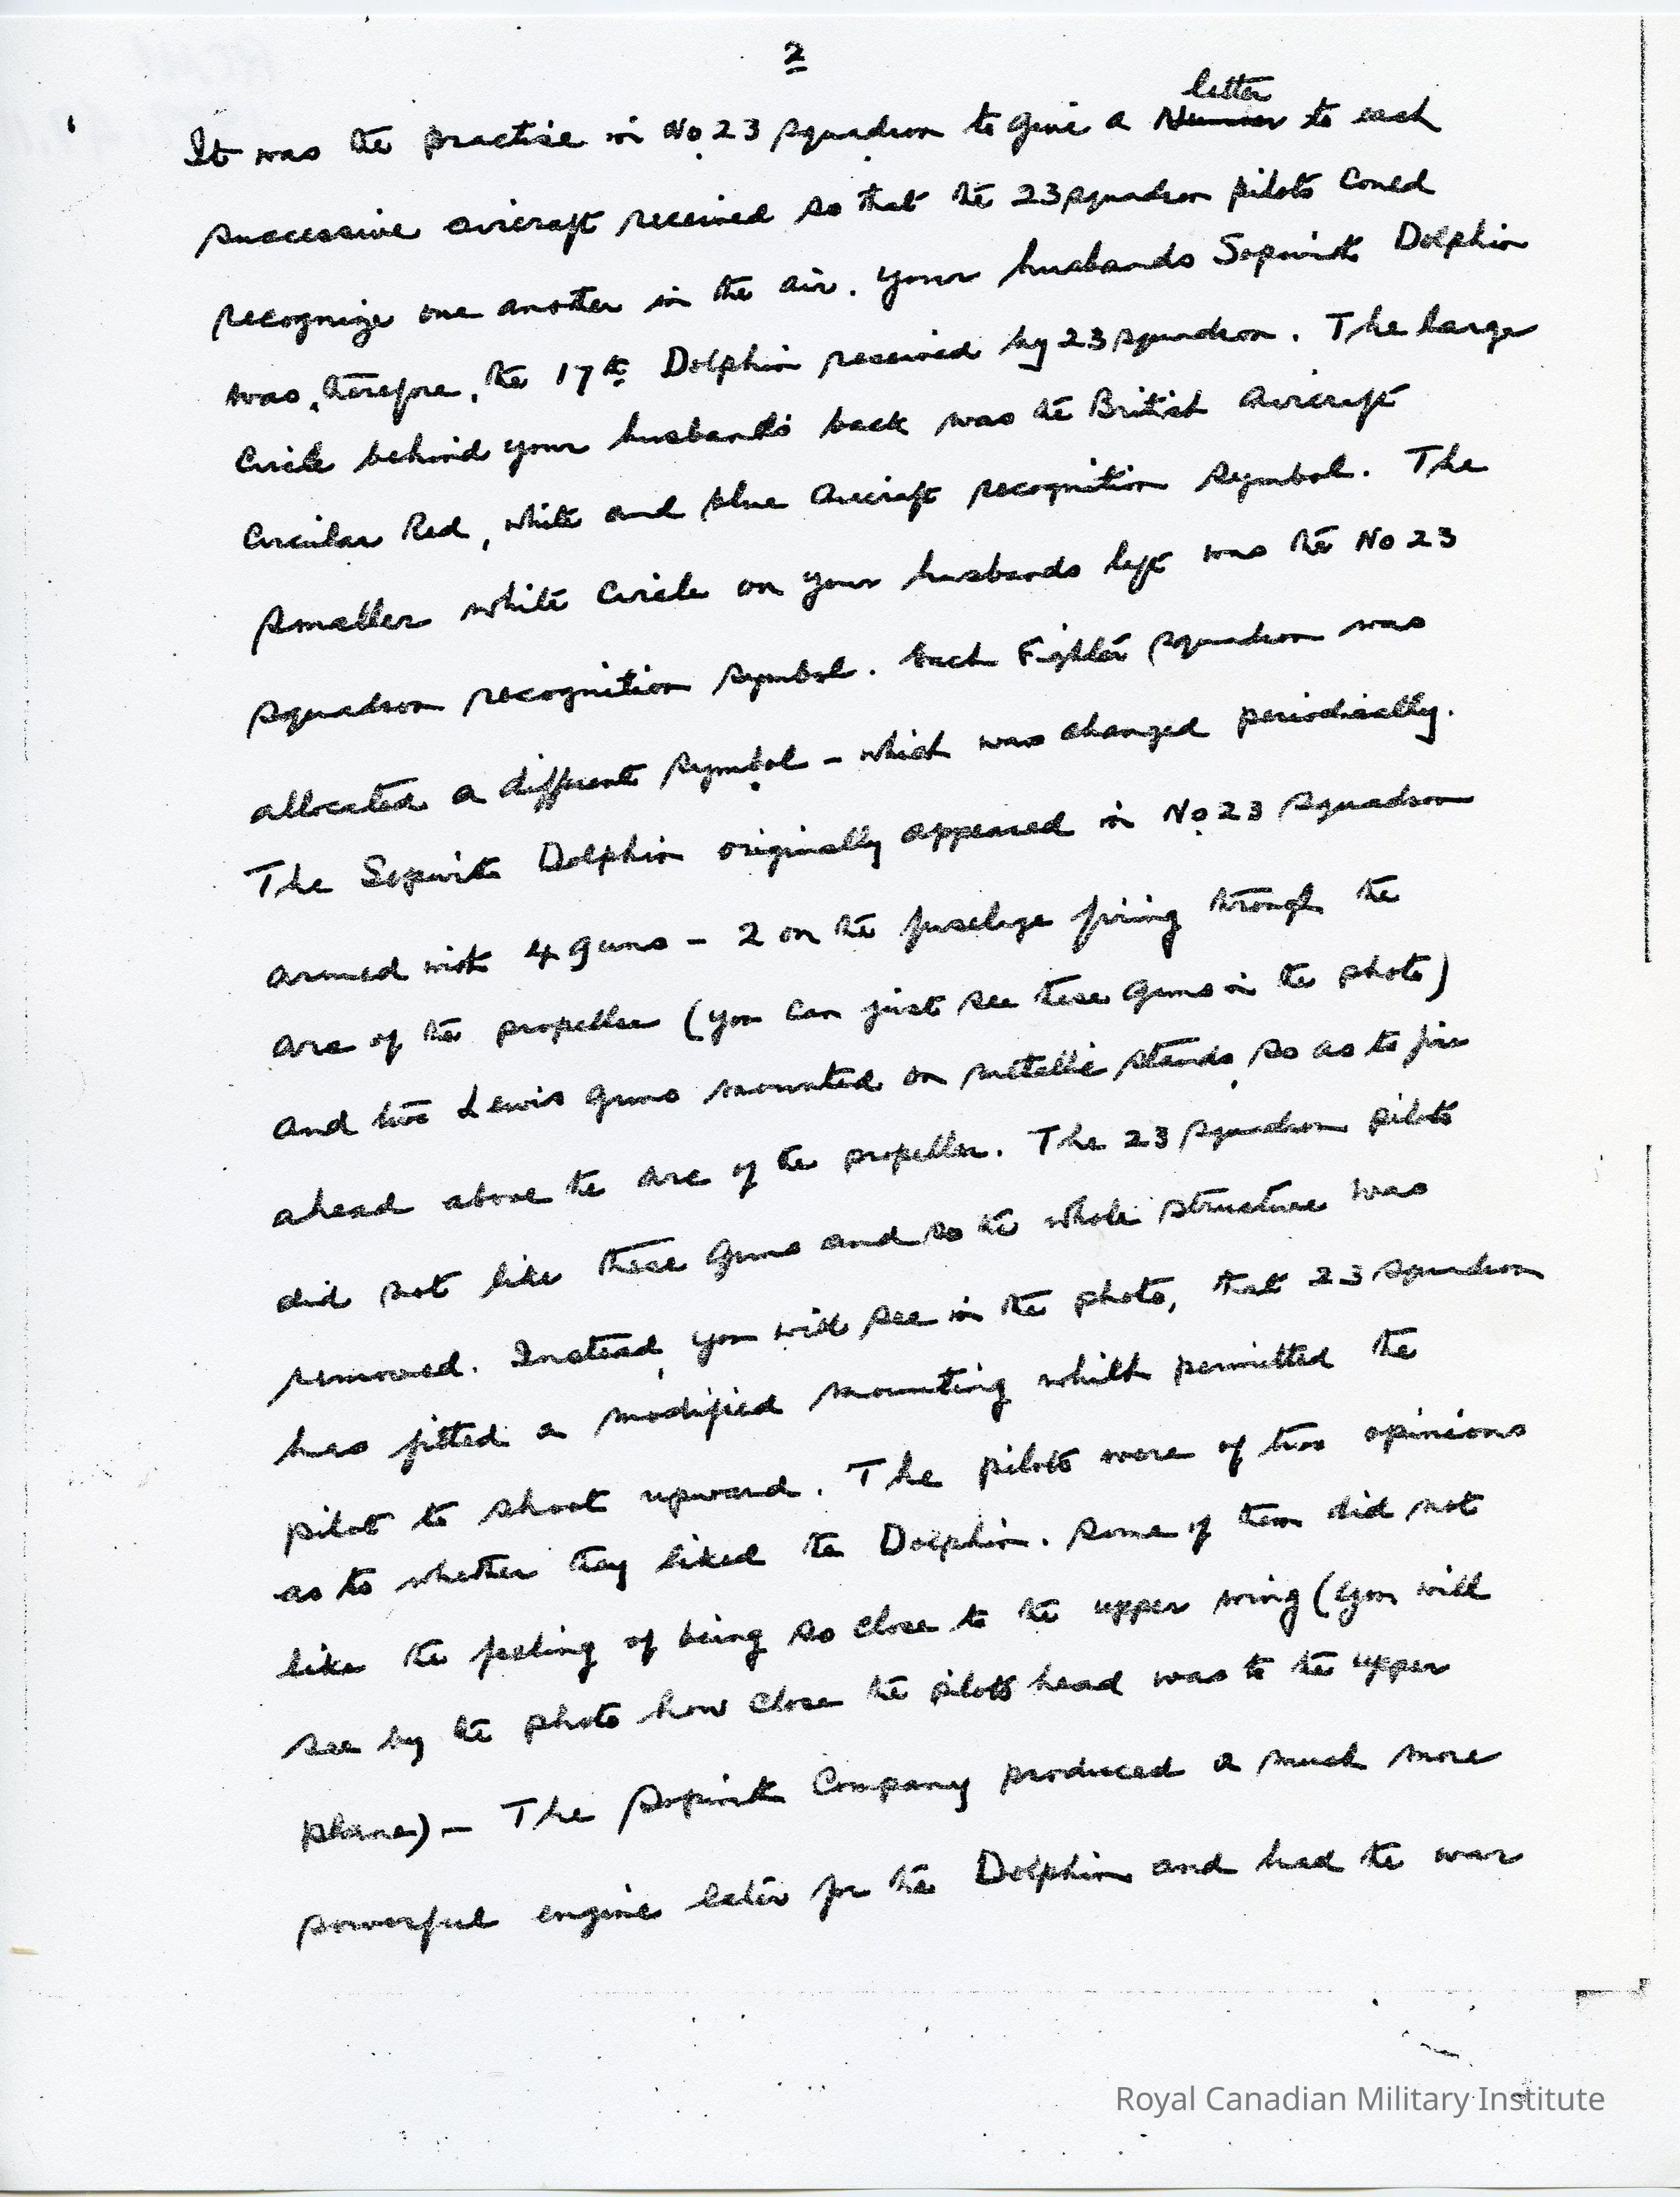 2
letter
It was the practise in No 23 squadron to give a Number to each
successive aircraft received so that the 23 squadron pilots could
recognize one another in the air. Your husbands Sopwith Dolphin
was, therefore, the 17th Dolphin received by 23 squadron. The large
Circle behind your husbands back was the British Aircraft
Circular Red, white and blue Aircraft recognition symbol. The
smaller white Circle on your husbands left was the No 23
squadron recognition symbol. Each Fighter squadron was
allocated a different symbol - which was changed periodically.
The Sopwith Dolphin originally appeared in No 23 squadron
armed with 4 guns - 2 on the fuselage firing through the
arc of the propeller (you can just see these guns in the photo)
and two Lewis guns mounted on metallic stands so as to fire
ahead above the arc of the propeller. The 23 squadron pilots
did not like these guns and so the whole structure was
removed. Instead, you will see in the photo, that 23 squadron
has fitted a modified mounting which permitted the
pilot to shoot upward. The pilots were of two opinions
as to whether they liked the Dolphin. Some of them did not
like the feeling of being so close to the upper wing (you will
see by the photo how close the pilots head was to the upper
plane) - The Sopwith Company produced a much more
powerful engine later for the Dolphin and had the war
Royal Canadian Military Institute